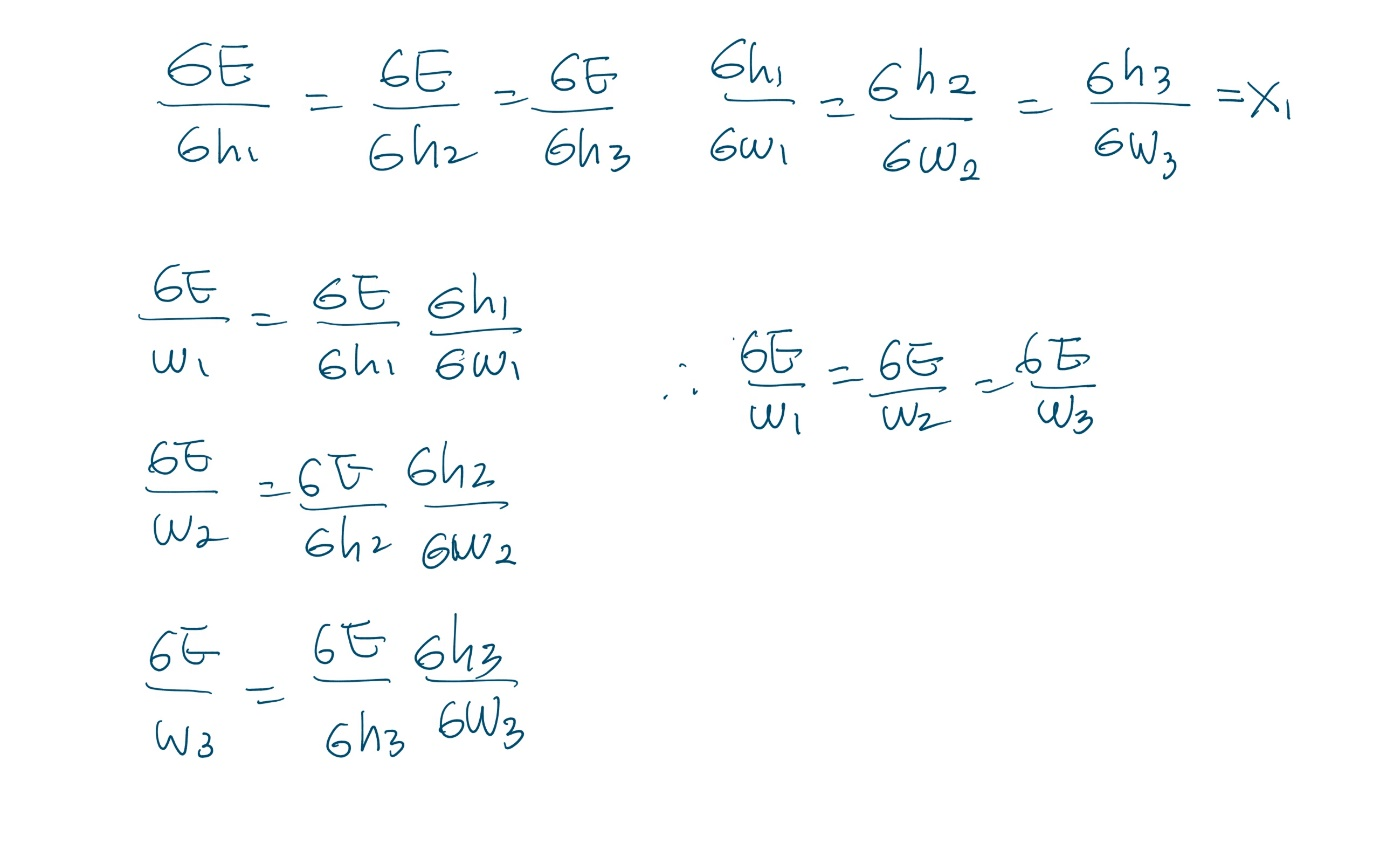 6E/6h1 = 6E/6h2 = 6E/6h3 6h1/6w1 = 6h2/6w2 = 6h3/6w3 = x1
6E/w1 = 6E/6h1 6h1/6w1
∴ 6E/w1 = 6E/w2 = 6E/w3
6E/w2 = 6E/6h2 6h2/6w2
6E/w3 = 6E/6h3 6h3/6w3